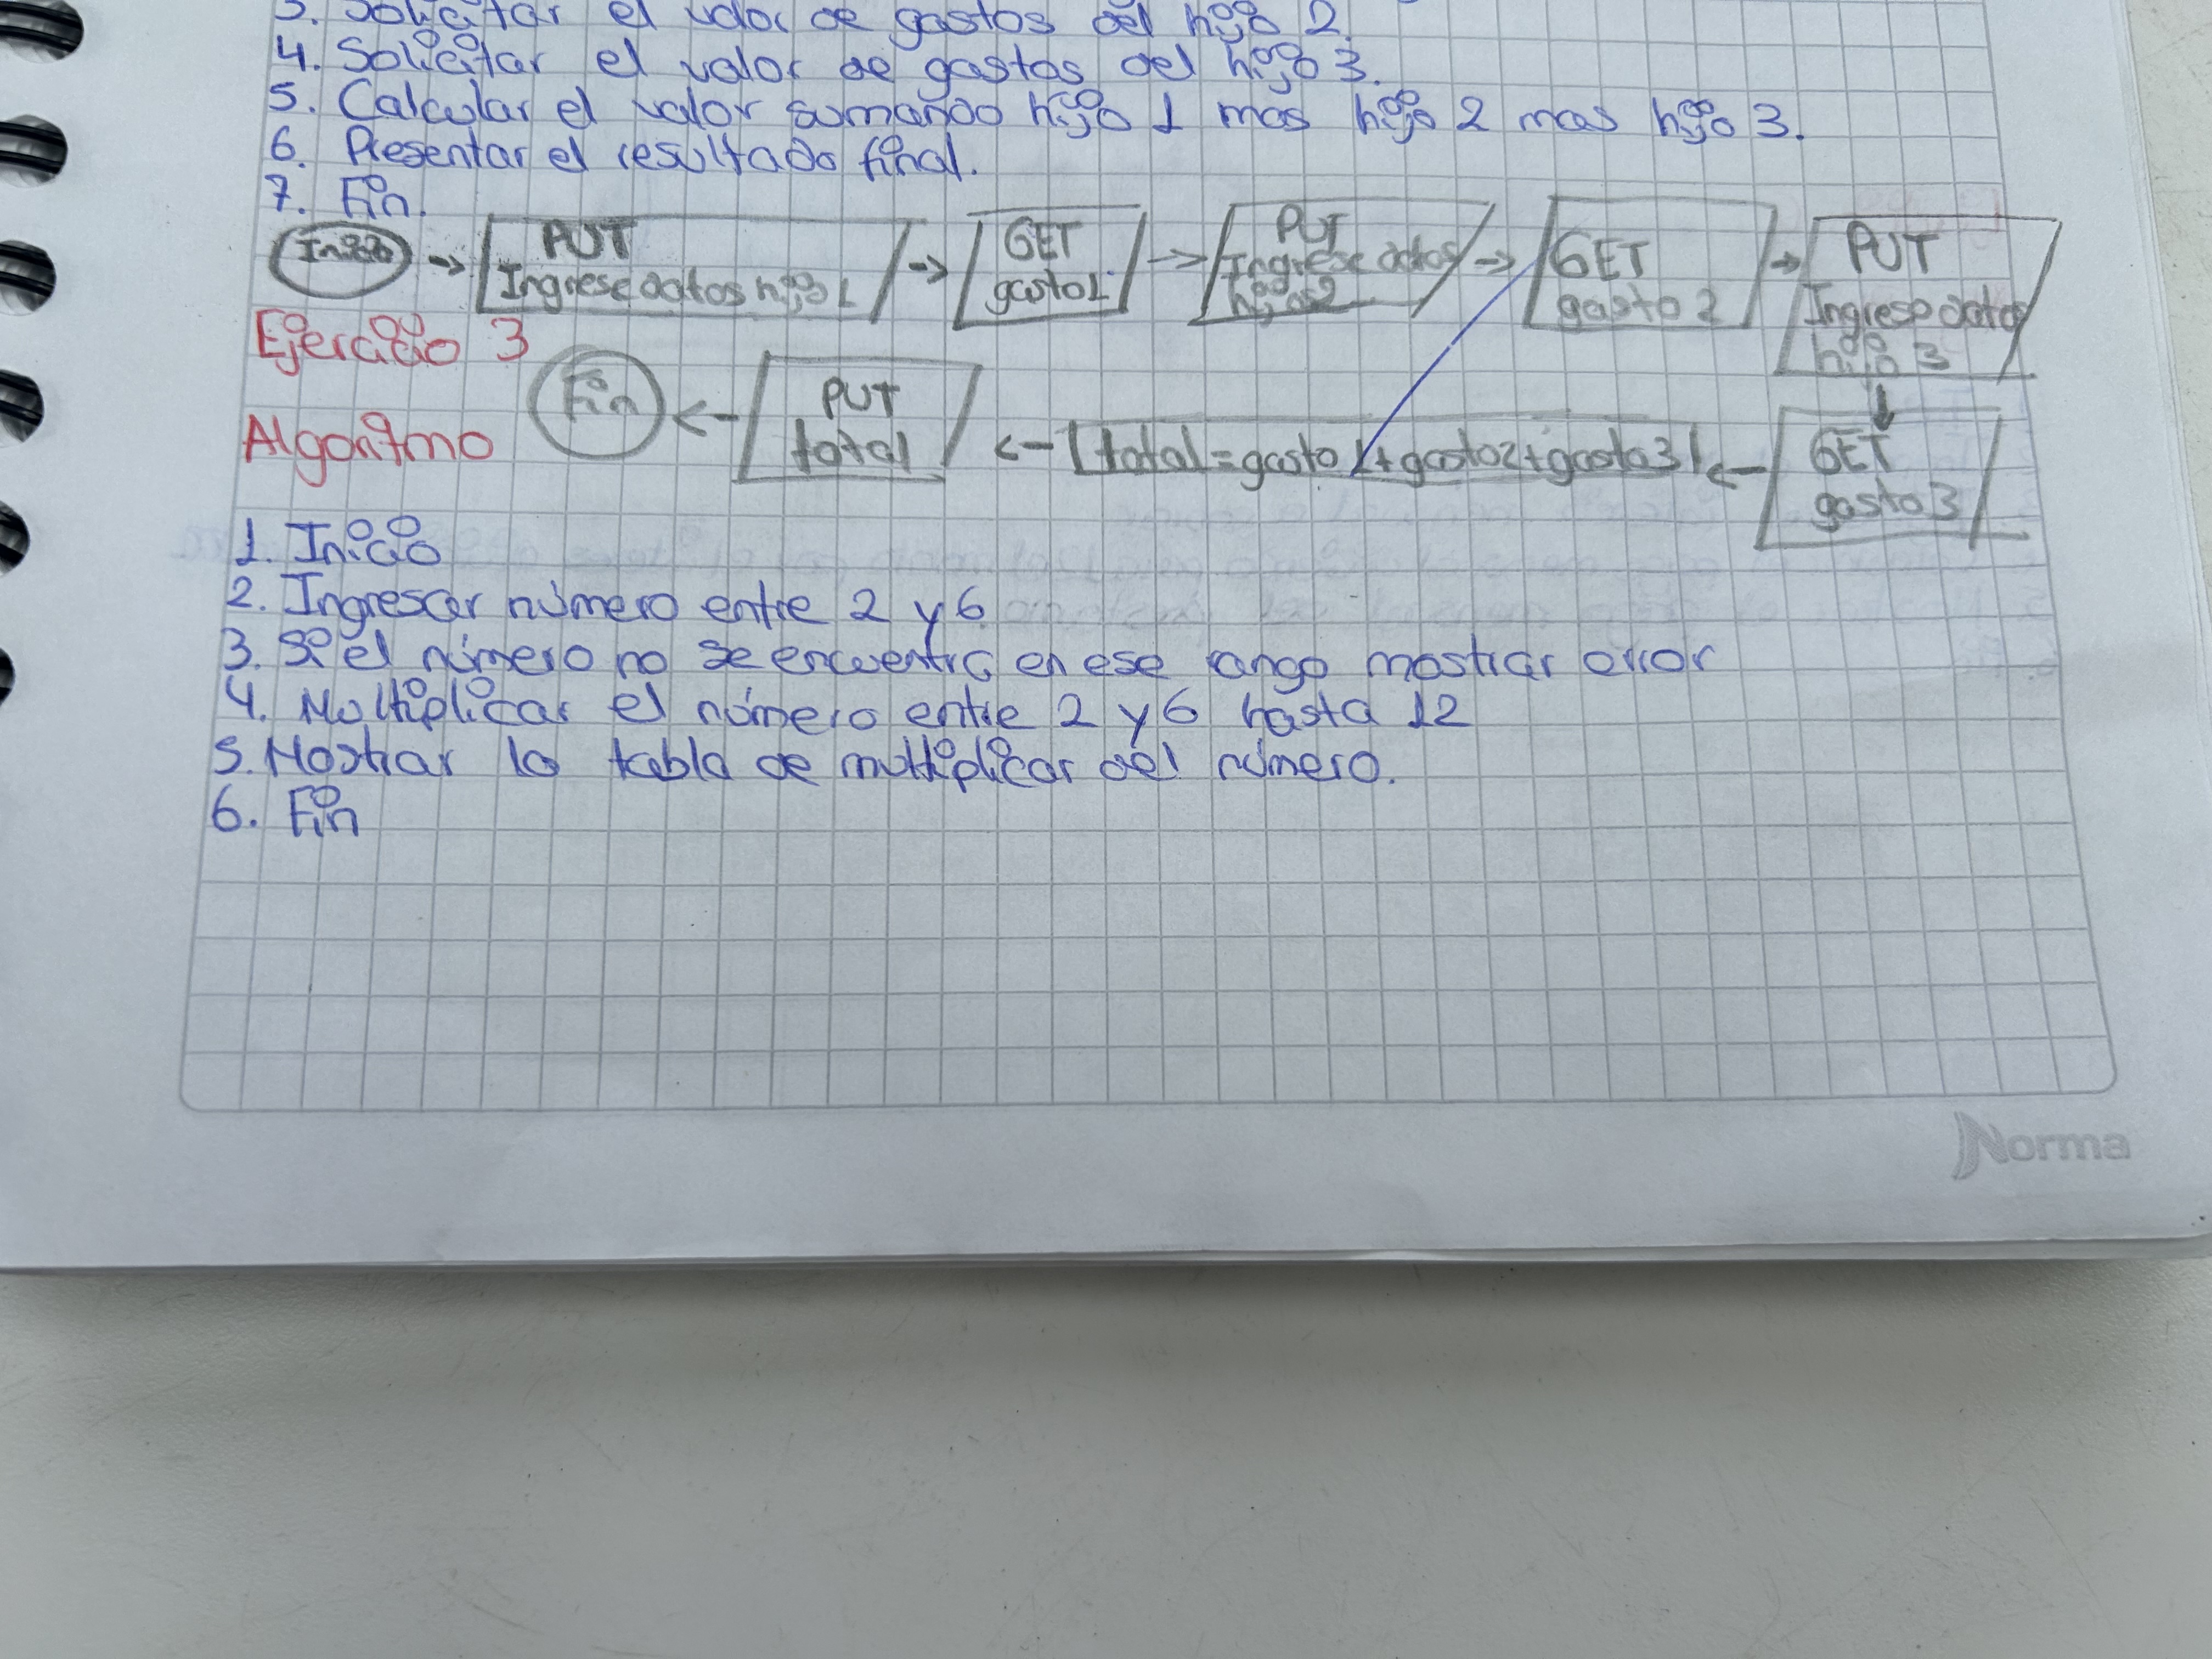 3. Solicitar el valor de gastos del hijo 2.
4. Solicitar el valor de gastos del hijo 3.
5. Calcular el valor sumando hijo 1 mas hijo 2 mas hijo 3.
6. Presentar el resultado final.
7. Fin.
Inicio
PUT
Ingrese datos hijo 1
GET
gasto1
PUT
Ingrese datos
hijo2
GET
gasto 2
PUT
Ingrese datos
hijo 3
GET
gasto 3
total=gasto1+gasto2+gasto3
PUT
total
Fin
Ejercicio 3
Algoritmo
1. Inicio
2. Ingresar número entre 2 y 6
3. Si el número no se encuentra en ese rango mostrar error
4. Multiplicar el número entre 2 y 6 hasta 12
5. Mostrar la tabla de multiplicar del número.
6. Fin
Norma